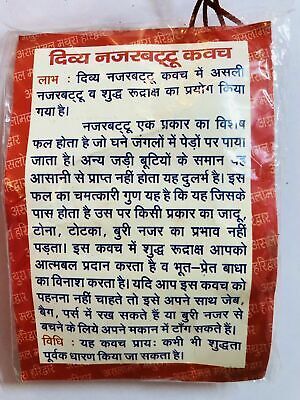 दिव्य नजरबट्टू कवच
लाभ : दिव्य नजरबट्टू कवच में असली
नजरबट्टू व शुद्ध रूद्राक्ष का प्रयोग किया
गया है।
नजरबट्टू एक प्रकार का विशेष
फल होता है जो घने जंगलों में पेड़ों पर पाया
जाता है। अन्य जड़ी बूटियों के समान यह
आसानी से प्राप्त नहीं होता यह दुर्लभ है। इस
फल का चमत्कारी गुण यह है कि यह जिसके
पास होता है उस पर किसी प्रकार का जादू,
टोना, टोटका, बुरी नजर का प्रभाव नहीं
पड़ता। इस कवच में शुद्ध रूद्राक्ष आपको
आत्मबल प्रदान करता है व भूत–प्रेत बाधा
का विनाश करता है। यदि आप इस कवच को
पहनना नहीं चाहते तो इसे अपने साथ जेब,
बैग, पर्स में रख सकते हैं या बुरी नजर से
बचने के लिये अपने मकान में टाँग सकते हैं।
विधि : यह कवच प्रायः कभी भी शुद्धता
पूर्वक धारण किया जा सकता है।